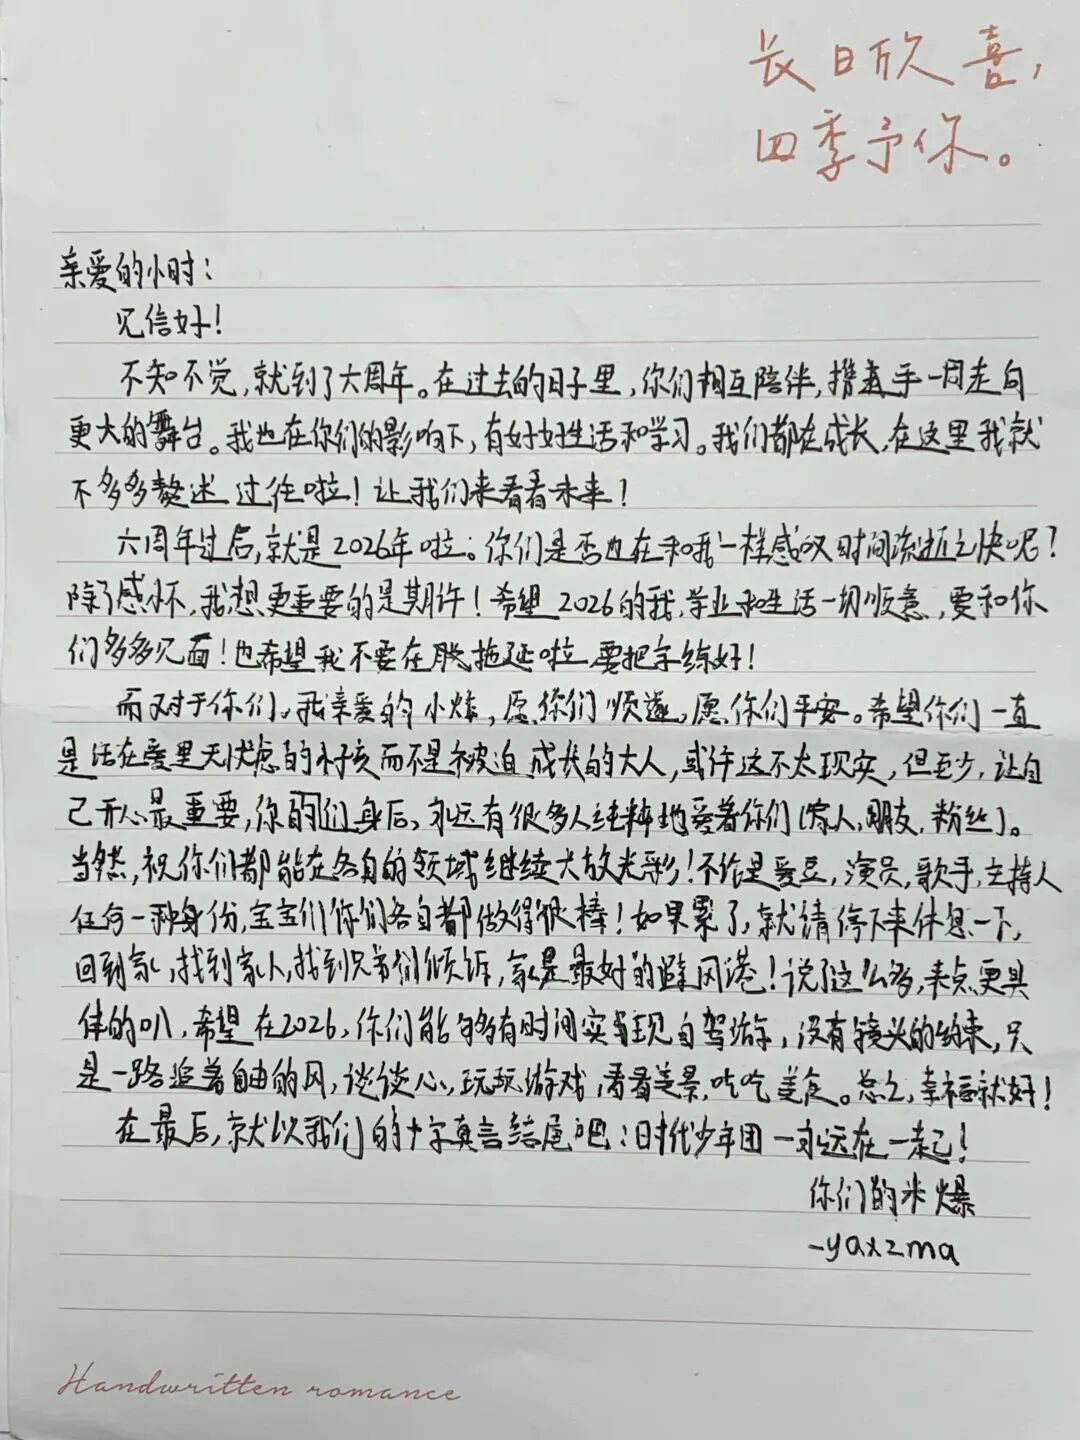 长日欣喜,
四季予你。
亲爱的小时:
见信好!
不知不觉,就到了六周年。在过去的日子里,你们相互陪伴,携着手一同走向
更大的舞台。我也在你们的影响下,有好好生活和学习。我们都在成长,在这里我就
不多多赘述过往啦!让我们来看看未来!
六周年过后,就是2026年啦。你们是否也在和我一样感叹时间流逝之快呢?
除了感怀,我想更重要的是期许!希望2026的我,学业和生活一切顺意,要和你
们多多见面!也希望我不要在脱拖延啦 要把字练好!
而对于你们,我亲爱的小炸,愿你们顺遂,愿你们平安。希望你们一直
是活在爱里无忧虑的小孩而不是被迫成长的大人,或许这不太现实,但至少,让自
己开心最重要,你的们身后,永远有很多人纯粹地爱着你们(家人,朋友,粉丝)。
当然,祝你们都能在各自的领域继续大放光彩!不论是爱豆,演员,歌手,主持人
任何一种身份,宝宝们你们各自都做得很棒!如果累了,就请停下来休息一下,
回到家,找到家人,找到兄弟们倾诉,家是最好的避风港!说了这么多,来点更具
体的叭,希望在2026,你们能够多有时间实现自驾游,没有镜头的约束,只
是一路追着自由的风,谈谈心,玩玩游戏,看看美景,吃吃美食。总之,幸福就好!
在最后,就以我们的十字真言结尾吧:时代少年团一永远在一起!
你们的米爆
-yaxzma
Handwritten romance